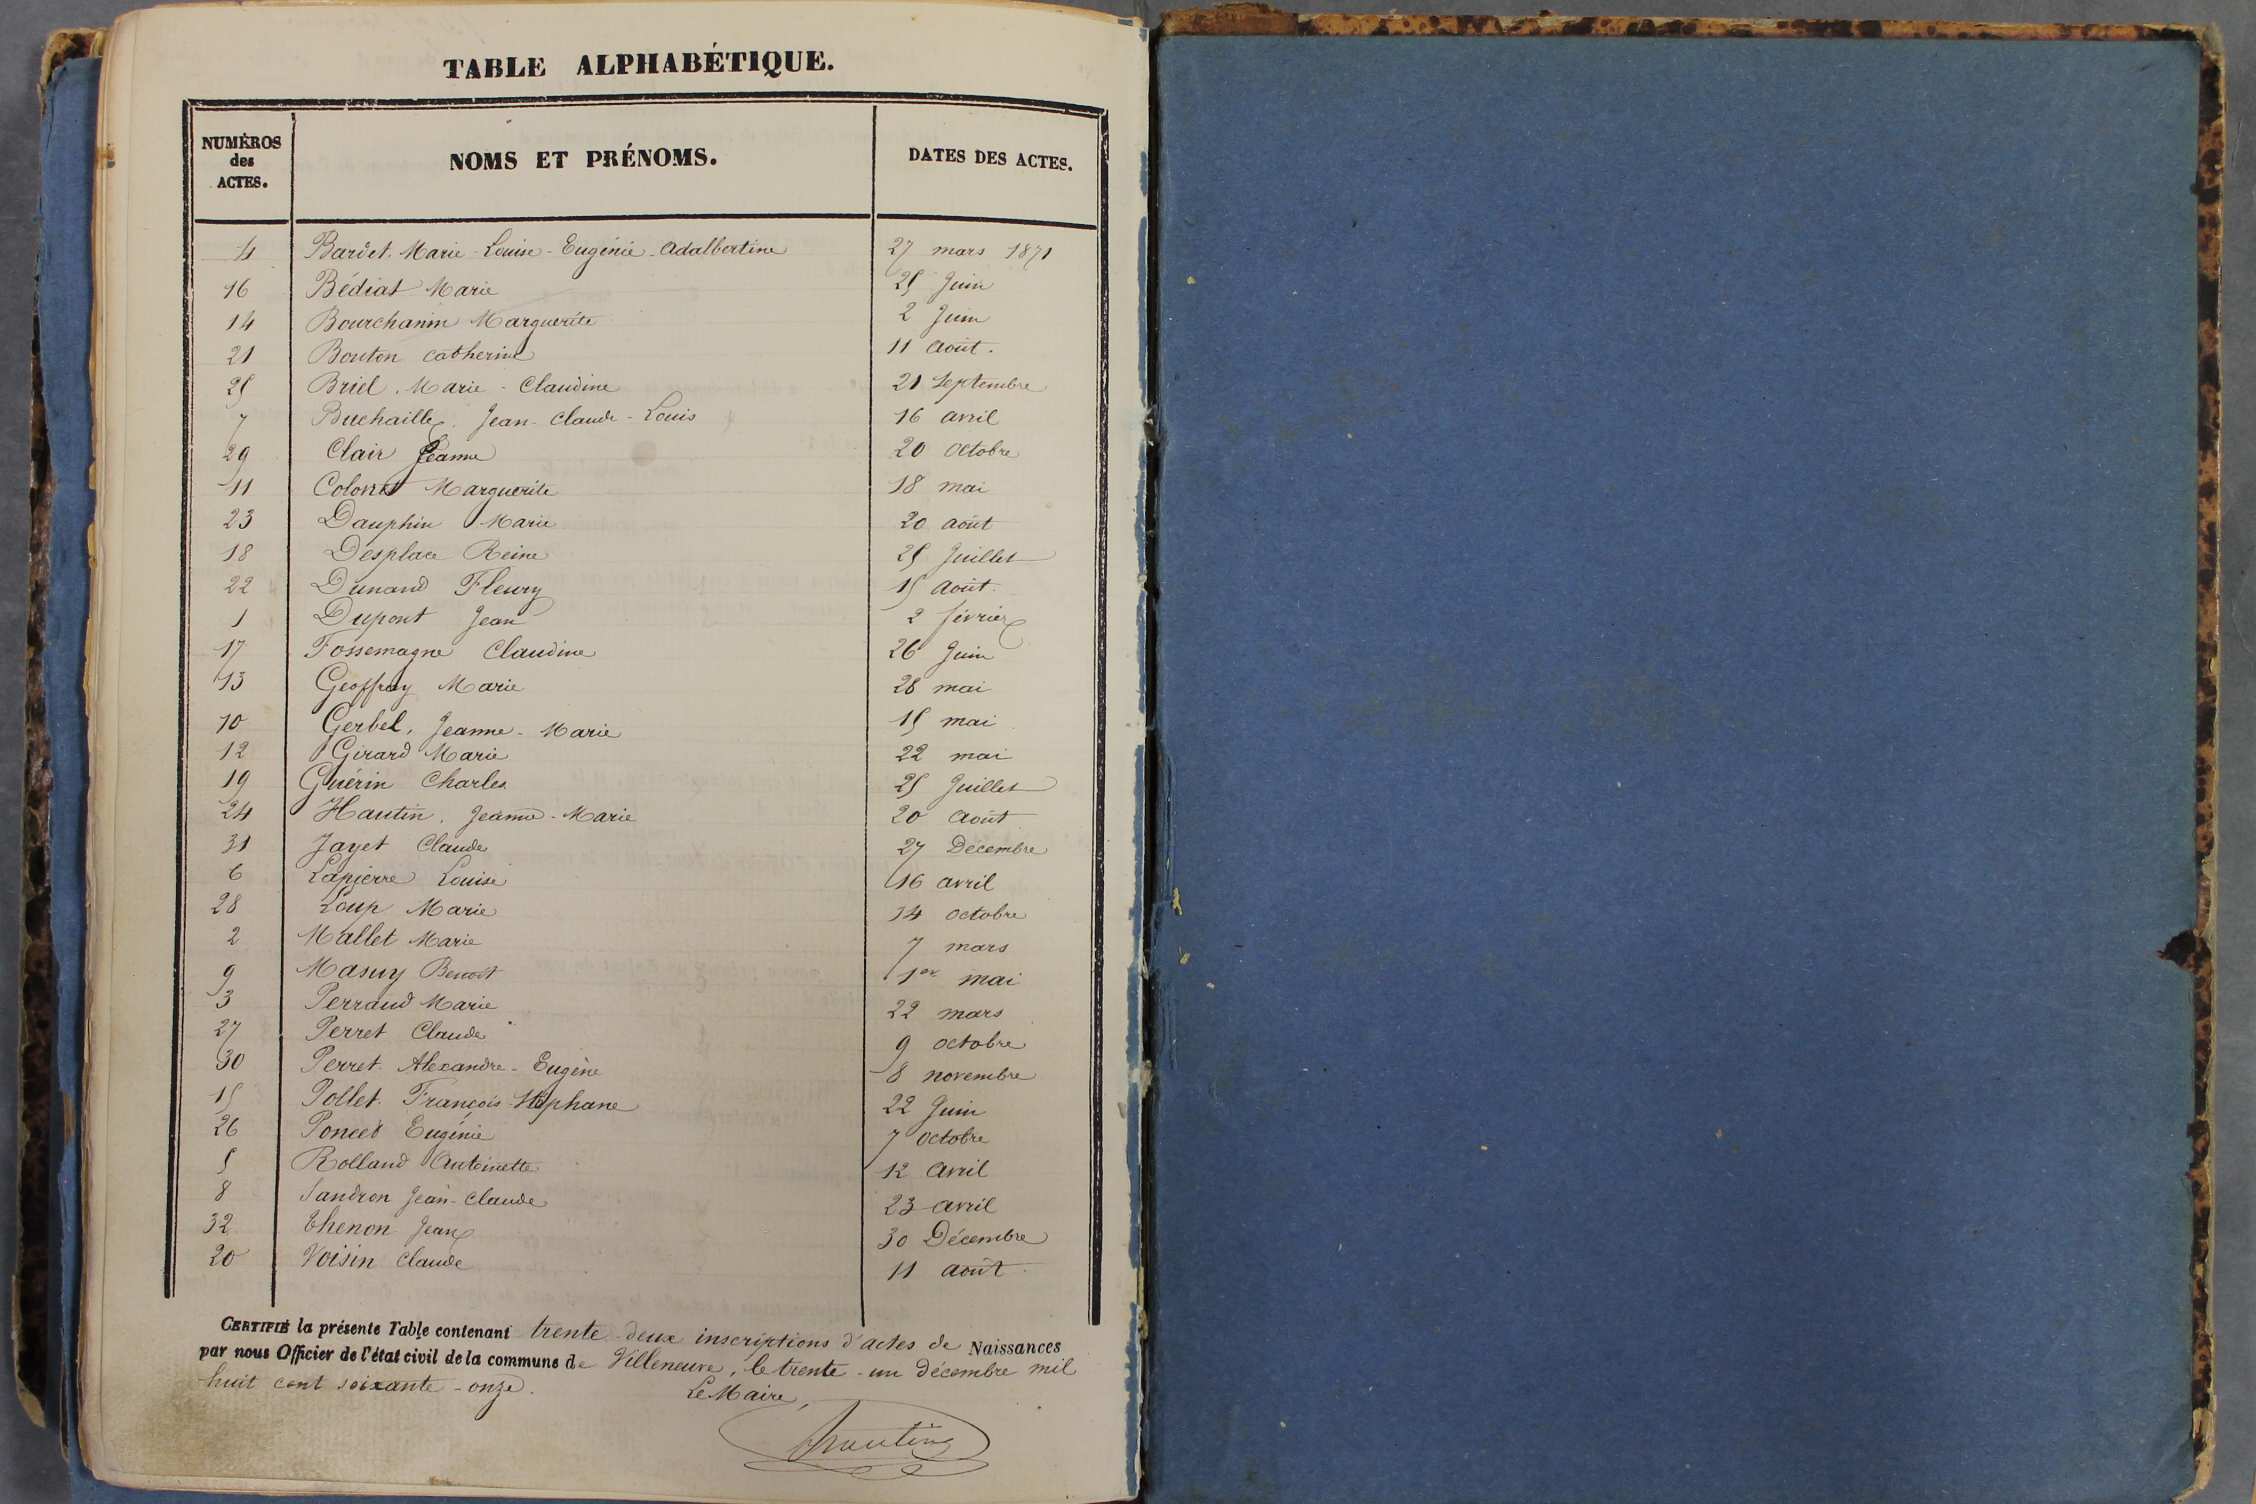 TABLE ALPHABÉTIQUE.
NUMÉROS des ACTES. NOMS ET PRÉNOMS. DATES DES ACTES.
4 Bardet Marie-Louise-Eugénie-Adalbertine 27 mars 1871
16 Bédiat Marie 25 Juin
14 Bourchanin Marguerite 2 Juin
21 Bouton Catherine 11 Août.
25 Briel, Marie-Claudine 21 Septembre
7 Buchaille, Jean-Claude-Louis 16 avril
29 Clair Jeanne 20 Octobre
11 Colonet Marguerite 18 mai
23 Dauphin Marie 20 août
18 Desplace Reine 25 Juillet
22 Dunand Fleury 15 Août.
1 Dupont Jean 2 février
17 Fossemagne Claudine 26 Juin
13 Geoffray Marie 28 mai
10 Gerbel, Jeanne-Marie 15 mai
12 Girard Marie 22 mai
19 Guérin Charles 25 Juillet
24 Hautin, Jeanne-Marie 20 Août
31 Jayet Claude 27 Décembre
6 Lapierre Louise 16 avril
28 Loup Marie 14 octobre
2 Mallet Marie 7 mars
9 Masuy Benoît 1er mai
3 Perraud Marie 22 mars
27 Perret Claude 9 octobre
30 Perret Alexandre-Eugène 8 novembre
15 Pollet François-Stéphane 22 Juin
26 Poncet Eugénie 7 Octobre
5 Rolland Antoinette 12 Avril
8 Sandron Jean-Claude 23 avril
32 Thenon Jean 30 Décembre
20 Voisin Claude 11 août
CERTIFIÉ la présente Table contenant trente-deux inscriptions d'actes de Naissances
par nous Officier de l'état civil de la commune de Villeneuve, le trente-un décembre mil
huit cent soixante-onze.
Le Maire,